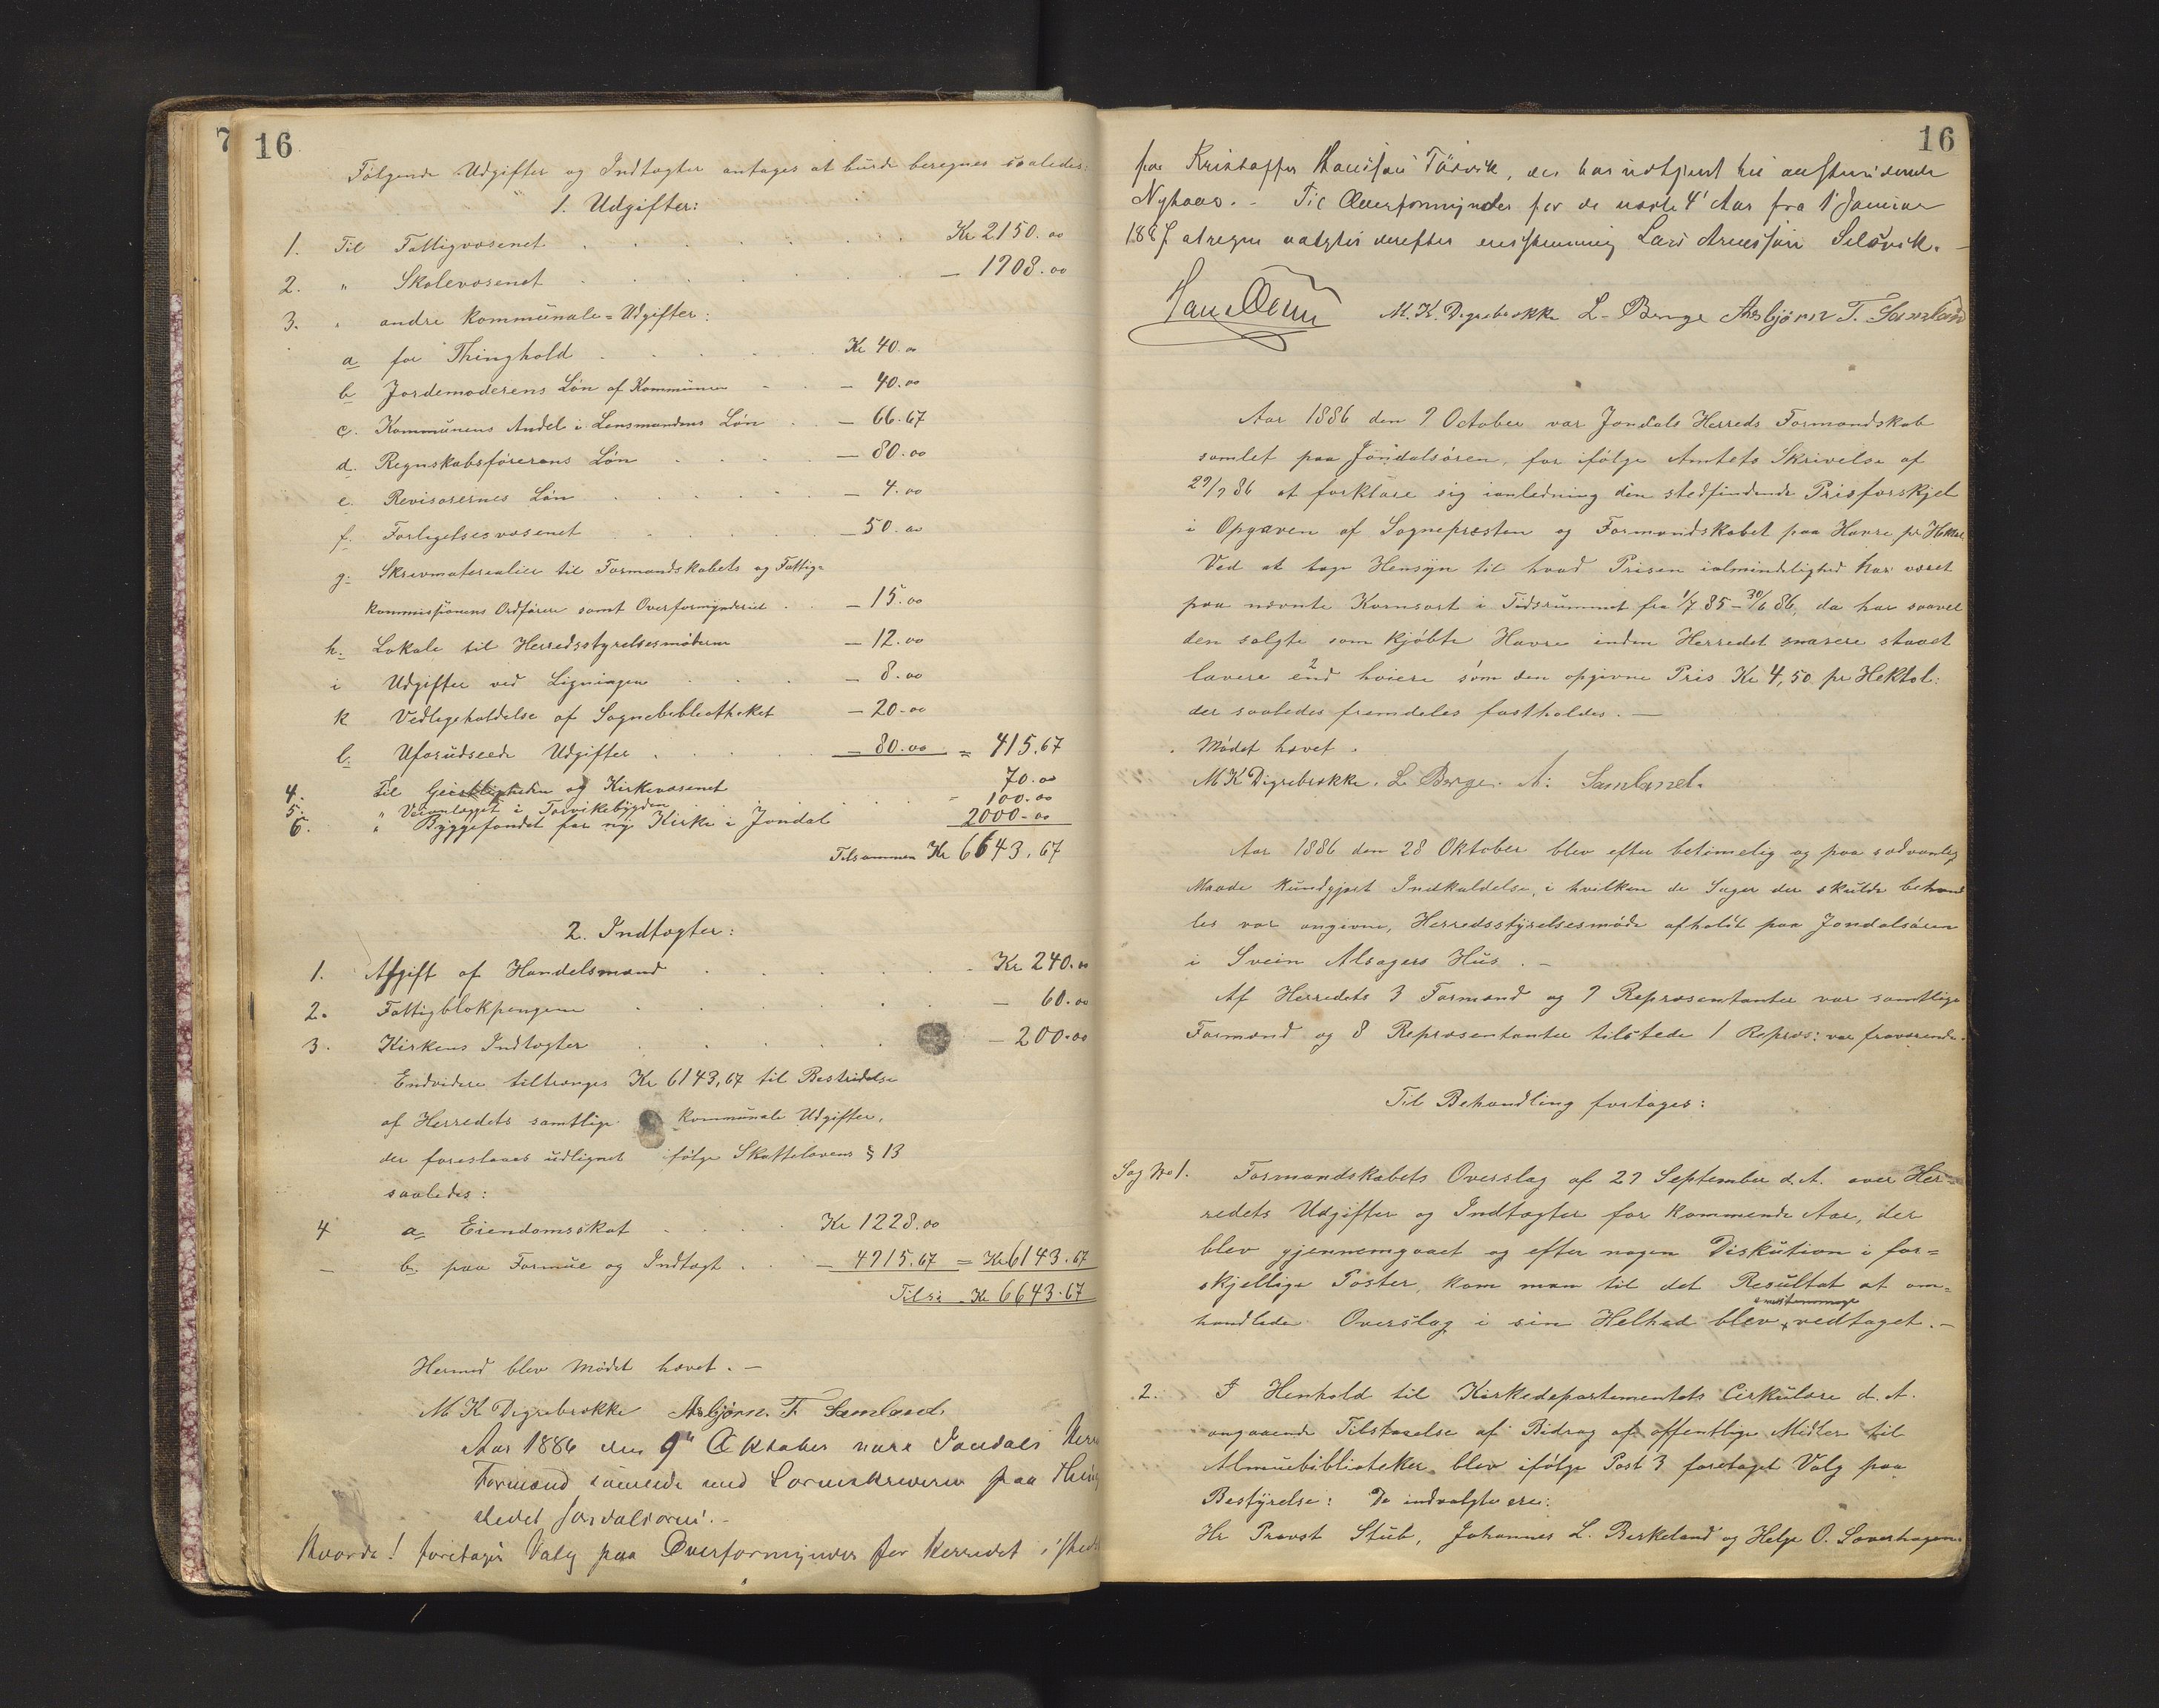 7
16
Følgende Udgifter og Indtægter antages at burde beregnes saaledes:
1. Udgifter:
1. Til Fattigvæsenet . . . Kr 2150.00
2. " Skolevæsenet . . . — 1908.00
3. " andre kommunale Udgifter:
a for Thinghold . . . Kr 40.00
b Jordemoderens Løn af Kommunen — 40.00
c. Kommunens Andel i Lensmandens Løn — 66.67
d. Regnskabsførerens Løn . . . — 80.00
e. Revisorernes Løn . . . — 4.00
f. Forligelsesvæsenet . . . — 50.00
g. Skrivmaterialier til Formandskabets og Fattig=
kommissionens Ordfører samt Overformynderiet . — 15.00
h. Lokale til Herredsstyrelsesmøderne — 12.00
i Udgifter ved Ligningen . . . — 8.00
k Vedligeholdelse af Sognebibliotheket — 20.00
l. Uforudseede Udgifter . . . — 80.00 = 415.67
4. Til Geistligheden og Kirkevæsenet 70.00
5. " Veianlægget i Torvikebygden 100.00
6. " Byggefondet for ny Kirke i Jondal 2000.00
Tilsammen Kr 6643.67
2. Indtægter:
1. Afgift af Handelsmænd . . . Kr 240.00
2. Fattigblokpengene . . . — 60.00
3. Kirkens Indtægter . . . — 200.00
Endvidere tiltrænges Kr 6143,67 til Bestridelse
af Herredets samtlige kommunale Udgifter,
der foreslaaes udlignet ifølge Skattelovens § 13
saaledes:
4 a Eiendomsskat . . . Kr 1228.00
— b. paa Formue og Indtægt . — 4915.67 = Kr 6143.67
Tils: Kr 6643.67
Hermed blev Mødet hævet. —
M K Digrebrække Asbjørn T. Samland
Aar 1886 den 9de Oktober vare Jondals Herre
Formænd samlede med Sorenskriveren paa Thing
stedet Jondalsøren. -
Hvorda! foretages Valg paa Overformynder for Herredet i Sted
16
for Kristoffer Hansen Torvik, der har udtjent til anstundende
Nytaar. - Til Overformynder for de næste 4 Aar fra 1 Januar
1887 at regne valgtes derefter enstemmig Lars Arnessen Selsvik. —
M. K. Digrebrække L. Berge Asbjørn T. Samland
Aar 1886 den 9 October var Jondals Herreds Formandskab
samlet paa Jondalsøren, for ifølge Amtets Skrivelse af
29/9 86 at forklare sig i anledning den stedfindende Prisforskjel
i Opgaven af Sognepresten og Formandskabet paa Havre pr Hektol
Ved at tage Hensyn til hvad Prisen i almindelighed har været
paa nævnte Kornsort i Tidsrummet fra 1/7 85 – 30/6 86, da har saavel
den solgte som kjøbte Havre inden Herredet snarere staaet
lavere end høiere som den opgivne Pris Kr 4,50 pr Hektol:
der saaledes fremdeles fastholdes. —
Mødet hævet.
M K Digrebrække. L Berge. A: Samland.
Aar 1886 den 28 Oktober blev efter betimelig og paa sædvanlig
Maade kundgjort Indkaldelse, i hvilken de Sager der skulde behand
les var angivne, Herredsstyrelsesmøde afholdt paa Jondalsøren
i Svein Alsagers Hus. —
Af Herredets 3 Formænd og 9 Repræsentanter var samtlige
Formænd og 8 Repræsentanter tilstede 1 Repræs: var fraværende.
Til Behandling foretages:
Sag No 1. Formandskabets Overslag af 29 September d. A. over Her=
redets Udgifter og Indtægter for kommende Aar, der
blev gjennemgaaet og efter nogen Diskution i for=
skjellige Poster, kom man til det Resultat at om=
handlede Overslag i sin Helhed blev enstemmig vedtaget. —
2. I Henhold til Kirkedepartementets Cirkulære d. A.
angaaende Tilstaaelse af Bidrag af offentlige Midler til
Almuebiblioteker blev ifølge Post 3 foretaget Valg paa
Bestyrelse: De indvalgte ere:
Hr Provst Stub, Johannes L. Berkeland og Helge O. Saverhagen.